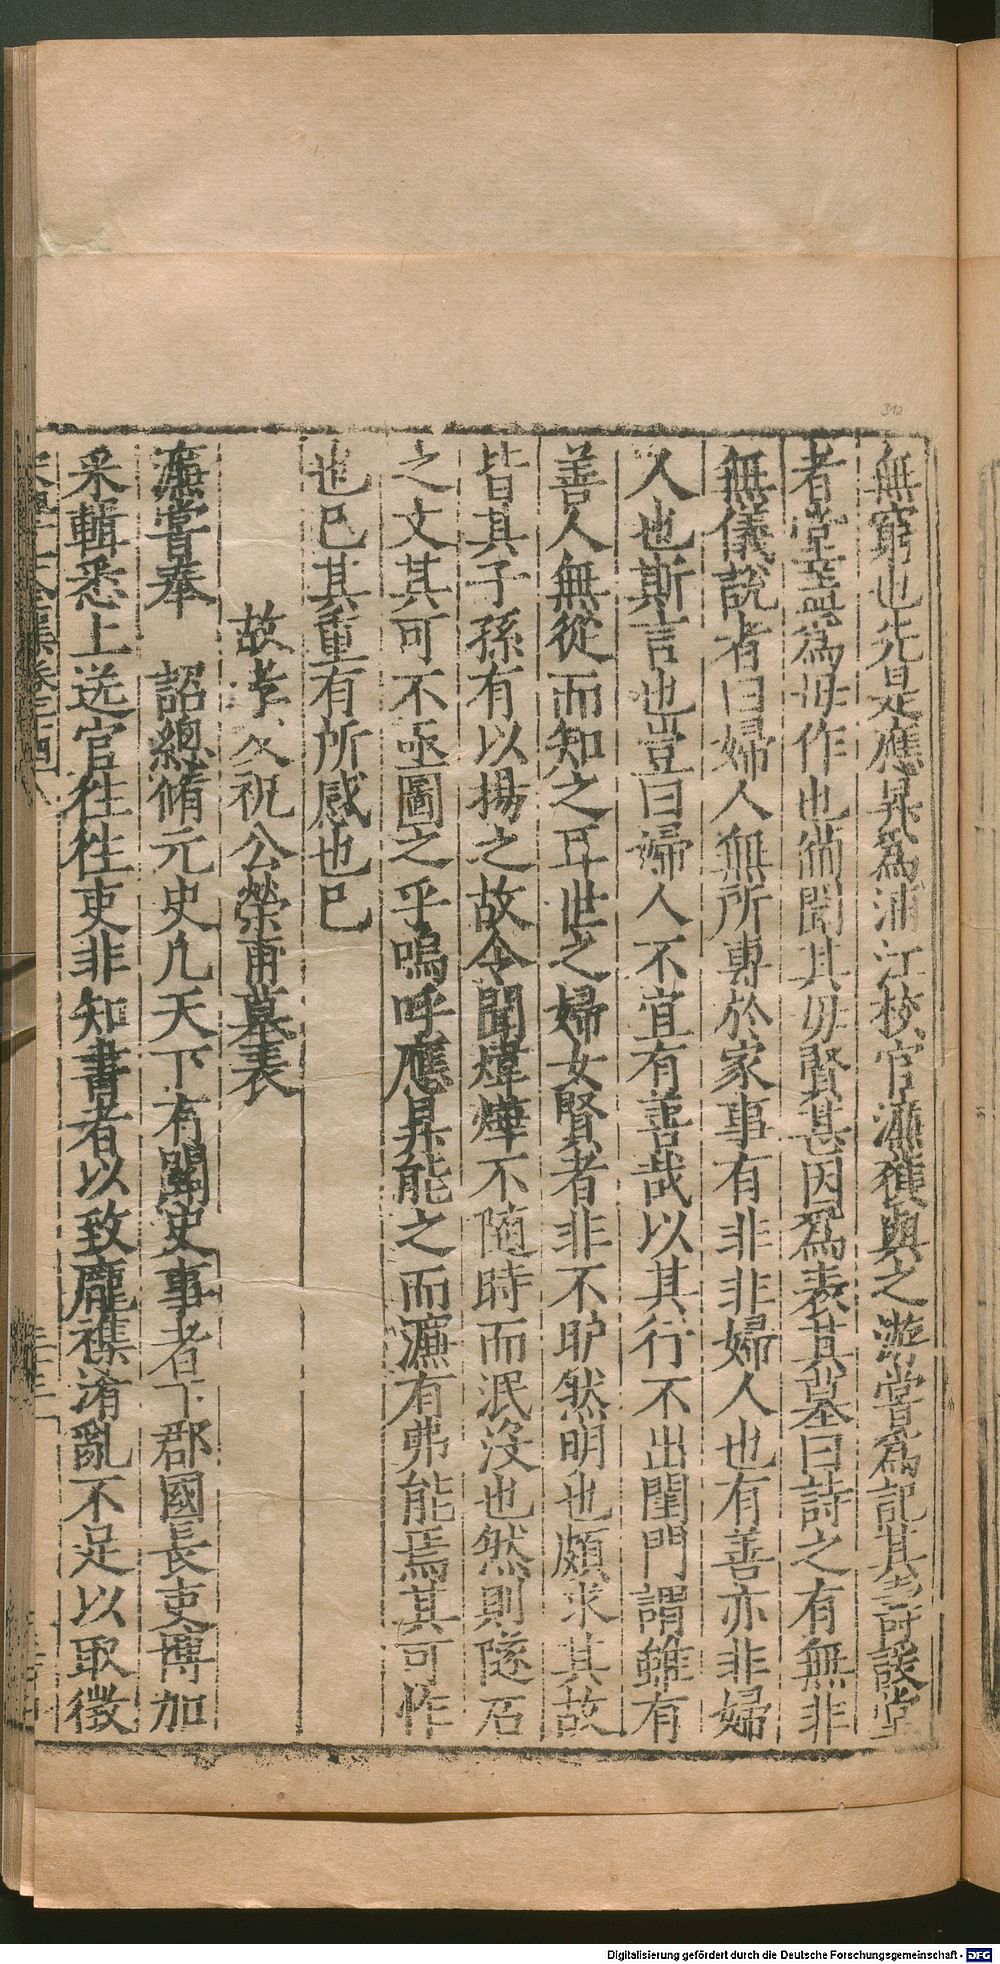 無窮也先是應昇爲浦江校官濂獲與之游嘗爲記其壽萱堂
者堂蓋爲母作也倘聞其母賢甚因爲表其墓曰詩之有無非
無儀說者曰婦人無所專於家事有非非婦人也有善亦非婦
人也斯言也豈曰婦人不宜有善哉以其行不出閨門謂雖有
善人無從而知之耳世之婦女賢者非不昈然明也頗求其故
皆其子孫有以揚之故令聞煒燁不随時而泯没也然則隧石
之文其可不亟圖之乎嗚呼應昇能之而濂有弗能焉其可怍
也已其重有所感也已
故孝友祝公榮甫墓表
濂嘗奉 詔總脩元史凡天下有關史事者下郡國長吏博加
采輯悉上送官往往吏非知書者以致龐襍淆亂不足以取徵
312
Digitalisierung gefördert durch die Deutsche Forschungsgemeinschaft - DFG